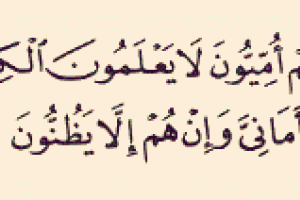 أُمِّيُّونَ لَا يَعْلَمُونَ
أَمَانِيَّ وَإِنْ هُمْ إِلَّا يَظُنُّونَ